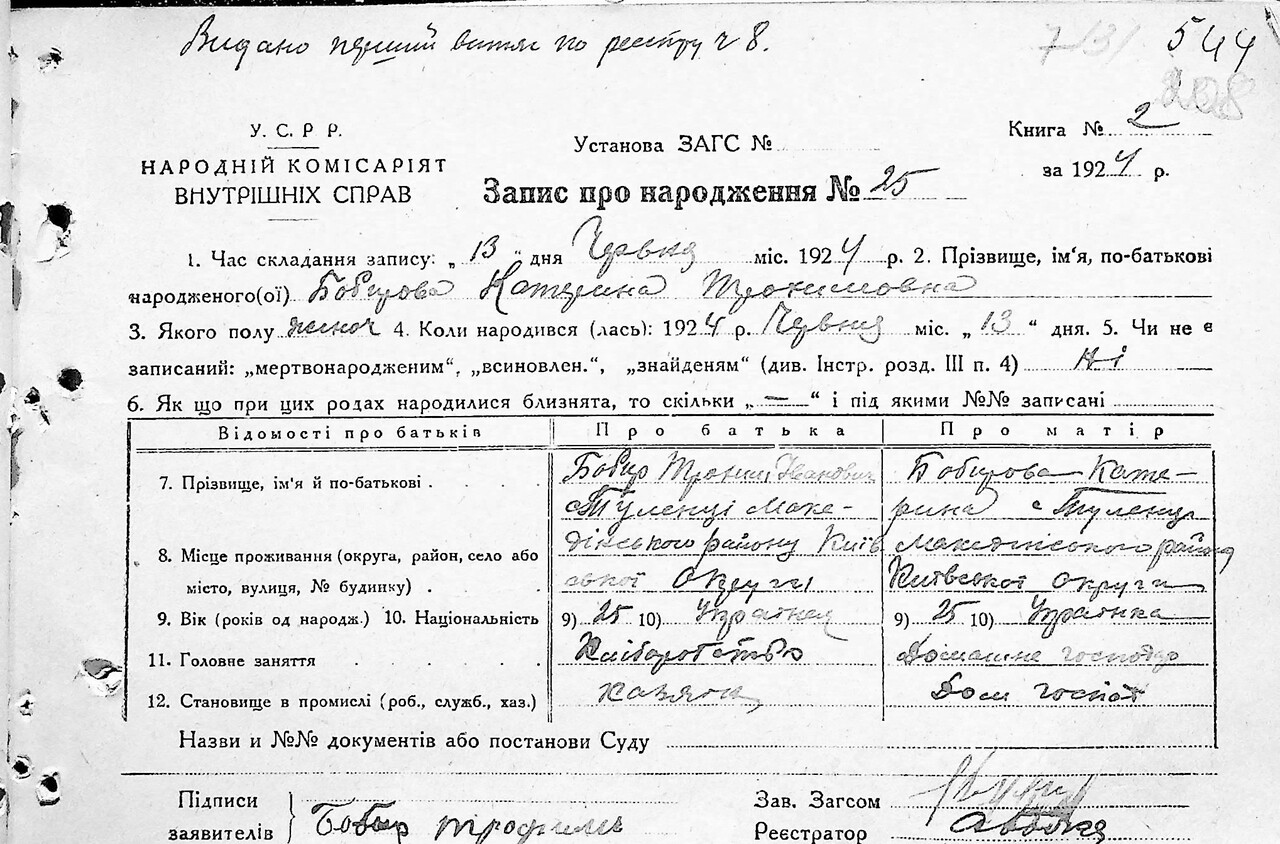 Видано перший витяг по реєстру ч 8.
544
208
У. С. Р Р.
НАРОДНІЙ КОМІСАРІЯТ
ВНУТРІШНІХ СПРАВ
Установа ЗАГС №
Книга № 2
за 1924 р.
Запис про народження № 25
1. Час складання запису: „ 13 “ дня Червня міс. 1924 р. 2. Прізвище, ім'я, по-батькові
народженого(ої) Бобирова Катерина Трохимовна
3. Якого полу жіноч 4. Коли народився (лась): 1924 р. Червня міс. „ 13 “ дня. 5. Чи не є
записаний: „мертвонародженим“, „всиновлен.“, „знайденям“ (див. Інстр. розд. III п. 4) Ні
6. Як що при цих родах народилися близнята, то скільки „ — “ і під якими №№ записані
Відомості про батьків
Про батька
Про матір
7. Прізвище, ім'я й по-батькові
Бобир Трохим Іванович
Бобирова Кате-
с Туленці Маке-
рина с Туленці
8. Місце проживання (округа, район, село або
місто, вулиця, № будинку)
дінського району Київ
ської Округи
Македінського району
Київської Округи
9. Вік (років од народж.) 10. Національність
9) 25 10) Українец
9) 25 10) Українка
11. Головне заняття
Хліборобство
Домашнє господар
12. Становище в промислі (роб., служб., хаз.)
хазяїн
Дом господ
Назви и №№ документів або постанови Суду
Підписи
заявителів
Бобир трофимь
Зав. Загсом
Реєстратор